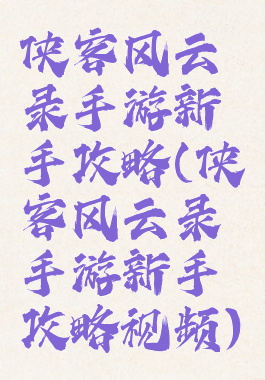 侠客风云
录手游新
手攻略(侠
客风云录
手游新手
攻略视频)